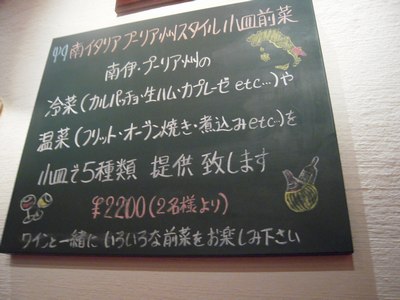 南イタリア プーリア州スタイル 小皿前菜
南伊・プーリア州の
冷菜(カルパッチョ・生ハム・カプレーゼ etc…)や
温菜(フリット・オーブン焼き・煮込み etc…)を
小皿で5種類 提供 致します
¥2200(2名様より)
ワインと一緒に いろいろな前菜をお楽しみ下さい